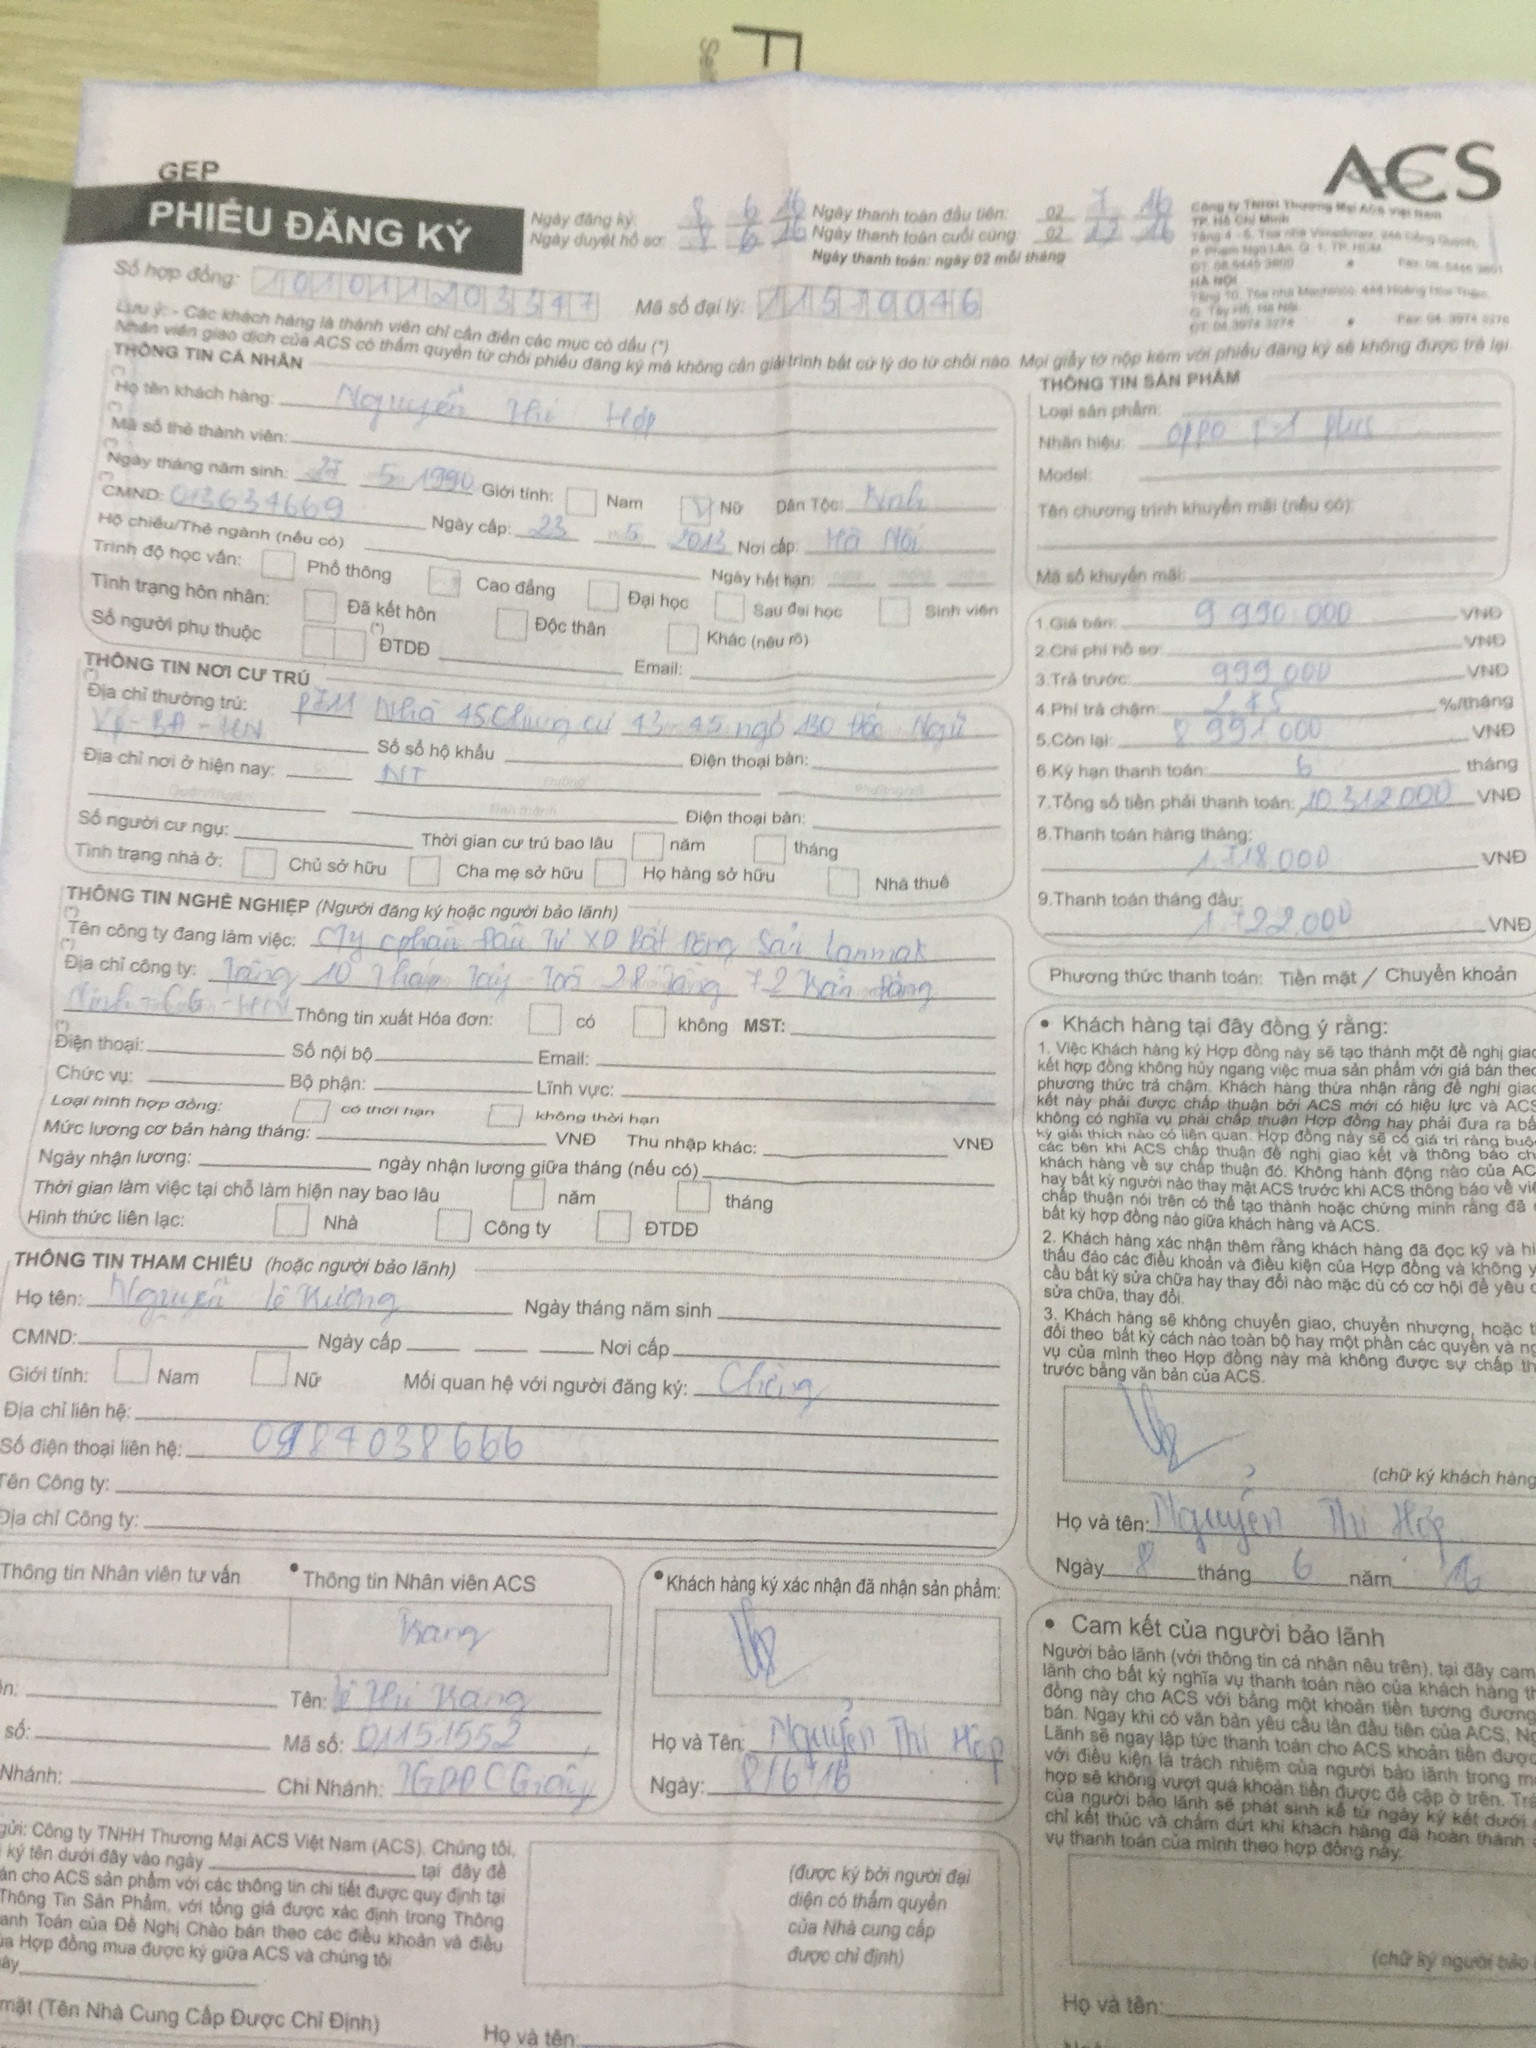 GEP
ACS
PHIẾU ĐĂNG KÝ
Ngày đăng ký: 8 6 16 Ngày thanh toán đầu tiên: 02 7 16
Ngày duyệt hồ sơ: 8 6 16 Ngày thanh toán cuối cùng: 02 12 16
Ngày thanh toán: ngày 02 mỗi tháng
Công ty TNHH Thương Mại ACS Việt Nam
TP. Hồ Chí Minh
HÀ NỘI
Số hợp đồng: 101011203347 Mã số đại lý: 11519046
Lưu ý: - Các khách hàng là thành viên chỉ cần điền các mục có dấu (*)
Nhân viên giao dịch của ACS có thẩm quyền từ chối phiếu đăng ký mà không cần giải trình bất cứ lý do từ chối nào. Mọi giấy tờ nộp kèm với phiếu đăng ký sẽ không được trả lại
THÔNG TIN CÁ NHÂN
(*) Họ tên khách hàng: Nguyễn Thị Hợp
(*) Mã số thẻ thành viên:
(*) Ngày tháng năm sinh: 27 5 1990 Giới tính: Nam V Nữ Dân Tộc: Kinh
(*) CMND: 013634669 Ngày cấp: 23 5 2013 Nơi cấp: Hà Nội
Hộ chiếu/Thẻ ngành (nếu có) Ngày hết hạn:
Trình độ học vấn: Phổ thông Cao đẳng Đại học Sau đại học Sinh viên
Tình trạng hôn nhân: Đã kết hôn Độc thân Khác (nêu rõ)
Số người phụ thuộc (*) ĐTDĐ Email:
THÔNG TIN NƠI CƯ TRÚ
(*) Địa chỉ thường trú: P711 Nhà 45 Chung cư 43-45 ngõ 130 Đốc Ngữ
VP-BĐ-HN Số sổ hộ khẩu Điện thoại bàn:
Địa chỉ nơi ở hiện nay: NT
Điện thoại bàn:
Số người cư ngụ: Thời gian cư trú bao lâu năm tháng
Tình trạng nhà ở: Chủ sở hữu Cha mẹ sở hữu Họ hàng sở hữu Nhà thuê
THÔNG TIN NGHỀ NGHIỆP (Người đăng ký hoặc người bảo lãnh)
(*) Tên công ty đang làm việc: Cty cphần Đầu Tư XD Bất Động Sản Lanmak
(*) Địa chỉ công ty: Tầng 10 Tháp Tây Toà 28 tầng 72 Trần Đăng
Ninh - CG - HN Thông tin xuất Hóa đơn: có không MST:
(*) Điện thoại: Số nội bộ Email:
Chức vụ: Bộ phận: Lĩnh vực:
Loại hình hợp đồng: có thời hạn không thời hạn
Mức lương cơ bản hàng tháng: VNĐ Thu nhập khác: VNĐ
Ngày nhận lương: ngày nhận lương giữa tháng (nếu có)
Thời gian làm việc tại chỗ làm hiện nay bao lâu năm tháng
Hình thức liên lạc: Nhà Công ty ĐTDĐ
THÔNG TIN THAM CHIẾU (hoặc người bảo lãnh)
Họ tên: Nguyễn Lê Ngày tháng năm sinh
CMND: Ngày cấp Nơi cấp
Giới tính: Nam Nữ Mối quan hệ với người đăng ký: Chồng
Địa chỉ liên hệ:
Số điện thoại liên hệ: 0984038666
Tên Công ty:
Địa chỉ Công ty:
THÔNG TIN SẢN PHẨM
Loại sản phẩm:
Nhãn hiệu: OPPO F1 plus
Model:
Tên chương trình khuyến mãi (nếu có):
Mã số khuyến mãi:
1.Giá bán: 9 990 000 VNĐ
2.Chi phí hồ sơ: VNĐ
3.Trả trước: 999 000 VNĐ
4.Phí trả chậm: 2.45 %/tháng
5.Còn lại: 8 991 000 VNĐ
6.Kỳ hạn thanh toán: 6 tháng
7.Tổng số tiền phải thanh toán: 10 312 000 VNĐ
8.Thanh toán hàng tháng:
1 718 000 VNĐ
9.Thanh toán tháng đầu:
1 722 000 VNĐ
Phương thức thanh toán: Tiền mặt / Chuyển khoản
• Khách hàng tại đây đồng ý rằng:
1. Việc Khách hàng ký Hợp đồng này sẽ tạo thành một đề nghị giao
kết hợp đồng không hủy ngang việc mua sản phẩm với giá bán theo
phương thức trả chậm. Khách hàng thừa nhận rằng đề nghị giao
kết này phải được chấp thuận bởi ACS mới có hiệu lực và ACS
không có nghĩa vụ phải chấp thuận Hợp đồng hay phải đưa ra bất
kỳ giải thích nào có liên quan. Hợp đồng này sẽ có giá trị ràng buộ
các bên khi ACS chấp thuận đề nghị giao kết và thông báo ch
khách hàng về sự chấp thuận đó. Không hành động nào của AC
hay bất kỳ người nào thay mặt ACS trước khi ACS thông báo về việ
chấp thuận nói trên có thể tạo thành hoặc chứng minh rằng đã
bất kỳ hợp đồng nào giữa khách hàng và ACS.
2. Khách hàng xác nhận thêm rằng khách hàng đã đọc kỹ và hi
thấu đáo các điều khoản và điều kiện của Hợp đồng và không y
cầu bất kỳ sửa chữa hay thay đổi nào mặc dù có cơ hội để yêu c
sửa chữa, thay đổi.
3. Khách hàng sẽ không chuyển giao, chuyển nhượng, hoặc t
đổi theo bất kỳ cách nào toàn bộ hay một phần các quyền và ng
vụ của mình theo Hợp đồng này mà không được sự chấp th
trước bằng văn bản của ACS.
(chữ ký khách hàng
Họ và tên: Nguyễn Thị Hợp
Ngày 8 tháng 6 năm 16
Thông tin Nhân viên tư vấn • Thông tin Nhân viên ACS
Trang
Tên: Lê Thị Trang
số: Mã số: 01151552
Nhánh: Chi Nhánh: TGDĐ CGiấy
• Khách hàng ký xác nhận đã nhận sản phẩm:
Họ và Tên: Nguyễn Thị Hợp
Ngày: 8/6/16
• Cam kết của người bảo lãnh
Người bảo lãnh (với thông tin cá nhân nêu trên), tại đây cam
lãnh cho bất kỳ nghĩa vụ thanh toán nào của khách hàng th
đồng này cho ACS với bằng một khoản tiền tương đương
bán. Ngay khi có văn bản yêu cầu lần đầu tiên của ACS, Ng
Lãnh sẽ ngay lập tức thanh toán cho ACS khoản tiền được
với điều kiện là trách nhiệm của người bảo lãnh trong m
hợp sẽ không vượt quá khoản tiền được đề cập ở trên. Trá
của người bảo lãnh sẽ phát sinh kể từ ngày ký kết dưới
chỉ kết thúc và chấm dứt khi khách hàng đã hoàn thành
vụ thanh toán của mình theo hợp đồng này.
(chữ ký người bảo
Họ và tên:
gửi: Công ty TNHH Thương Mại ACS Việt Nam (ACS). Chúng tôi,
ký tên dưới đây vào ngày tại đây đề
án cho ACS sản phẩm với các thông tin chi tiết được quy định tại
Thông Tin Sản Phẩm, với tổng giá được xác định trong Thông
anh Toán của Đề Nghị Chào bán theo các điều khoản và điều
ủa Hợp đồng mua được ký giữa ACS và chúng tôi
ày
(được ký bởi người đại
diện có thẩm quyền
của Nhà cung cấp
được chỉ định)
mặt (Tên Nhà Cung Cấp Được Chỉ Định)
Họ và tên: